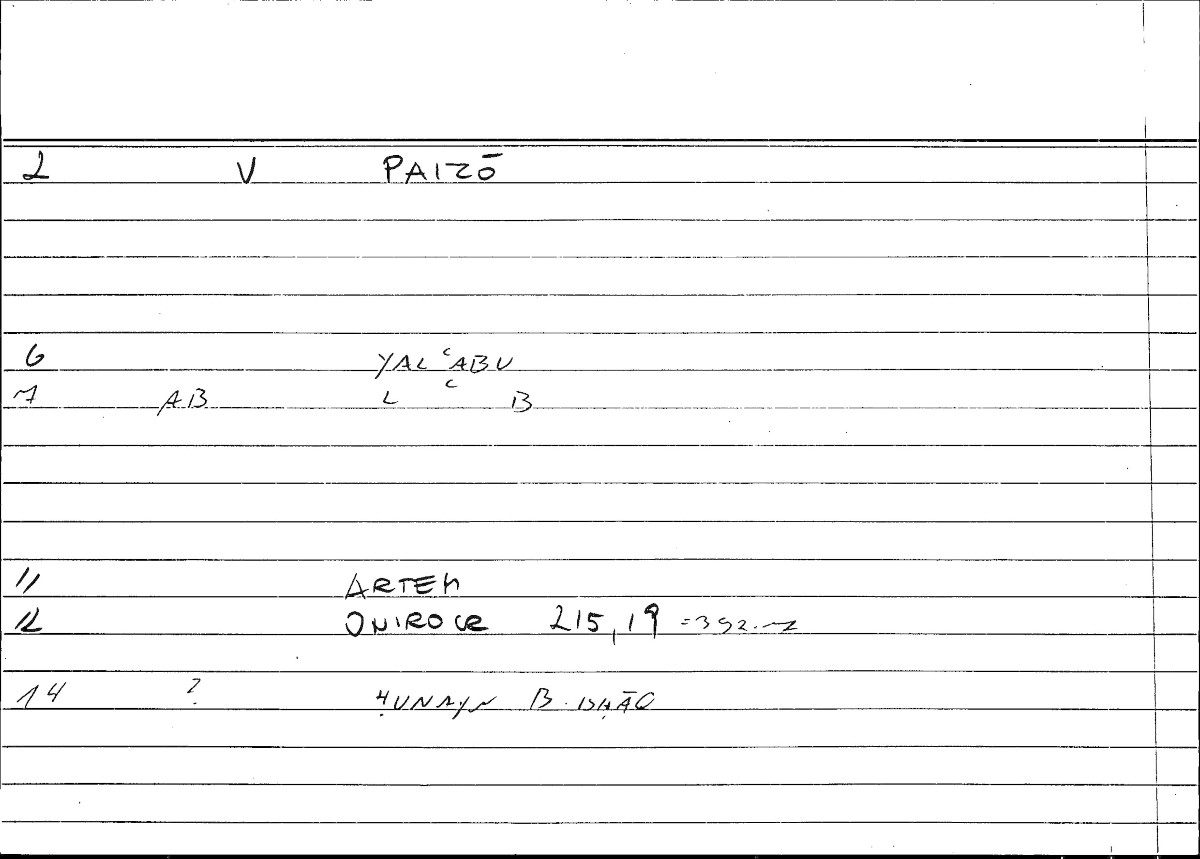 2 V PAIZŌ
6 YALʿABU
7 AB L ʿ B
11 ARTEM
12 ONIROCR 215,19 =392.7
14 ? ḤUNAYN B. ISḤĀQ